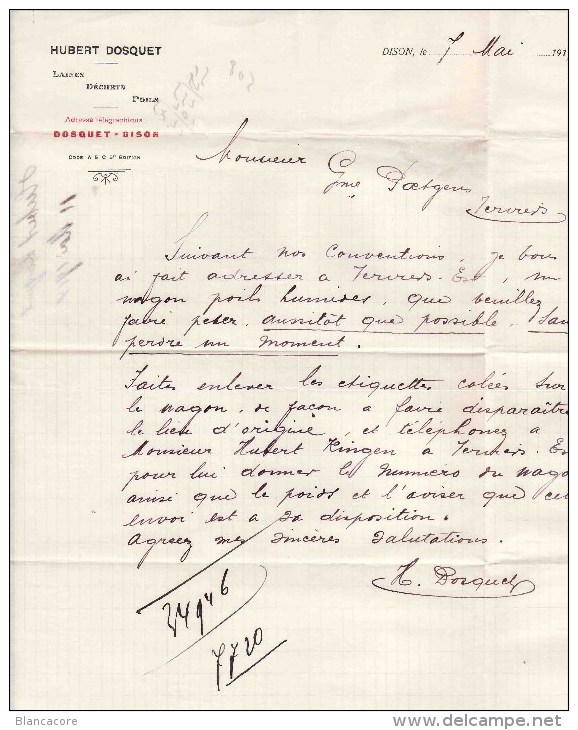 HUBERT DOSQUET
LAINES
DÉCHETS
POILS
Adresse télégraphique
DOSQUET - DISON
CODE A B C 5e EDITION
DISON, le 7 Mai 191
Monsieur
Gme Pætgens
Verviers
Suivant nos conventions, je vous
ai fait adresser à Verviers-Est, un
wagon poils humides, que veuillez
faire peser, aussitôt que possible, san
perdre un moment.
Faites enlever les etiquettes colées sur
le wagon, de façon a faire disparaître
le lieu d'origine, et téléphonez a
Monsieur Hubert Kingen a Verviers. Es
pour lui donner le Numero du wago
ainsi que le poids et l'aviser que cet
envoi est a sa disposition.
Agreez mes sincères salutations.
H. Dosquet
34946
7720
Blancacore
www.delcampe.net